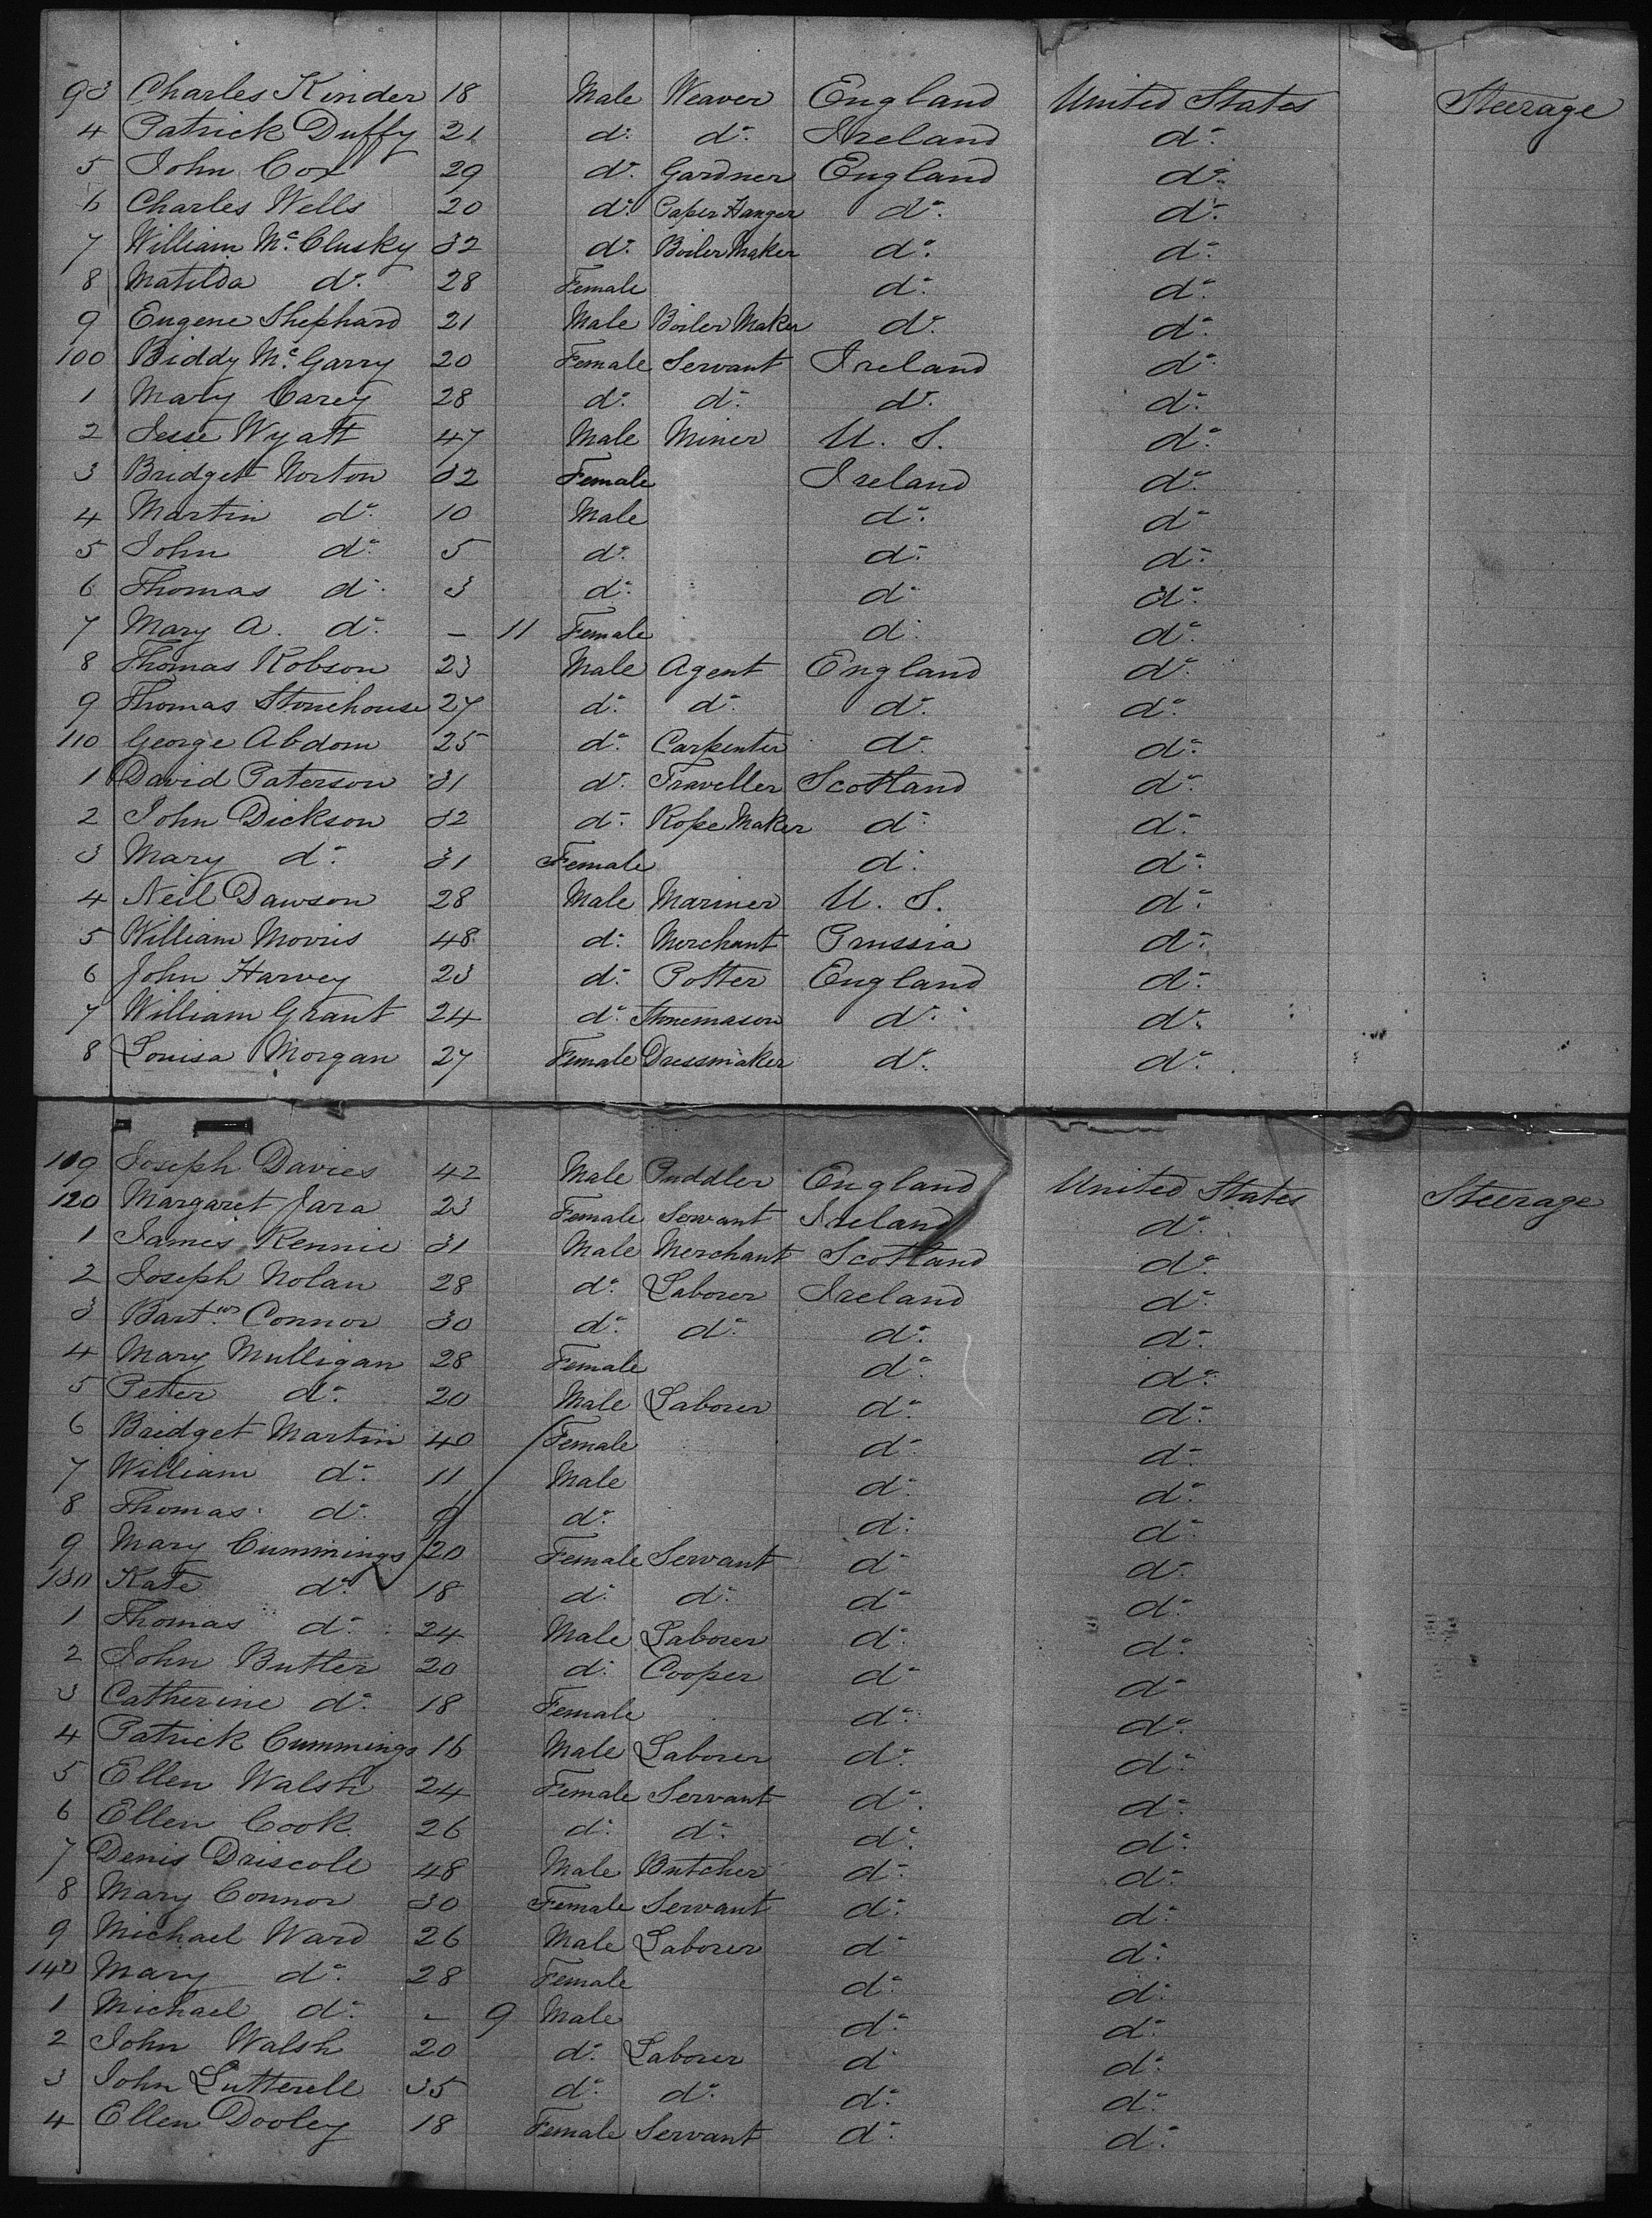 93 Charles Kinder 18 Male Weaver England United States Steerage
4 Patrick Duffy 21 do. do. Ireland do.
5 John Cox 29 do. Gardner England do.
6 Charles Wells 20 do. Paper Hanger do. do.
7 William Mc.Clusky 32 do. Boiler Maker do. do.
8 Matilda do. 28 Female do. do.
9 Eugene Shephard 21 Male Boiler Maker do. do.
100 Biddy Mc.Garry 20 Female Servant Ireland do.
1 Mary Carey 28 do. do. do. do.
2 Jesse Wyatt 47 Male Miner U. S. do.
3 Bridget Norton 32 Female Ireland do.
4 Martin do. 10 Male do. do.
5 John do. 5 do. do. do.
6 Thomas do. 3 do. do. do.
7 Mary A. do. – 11 Female do. do.
8 Thomas Robson 23 Male Agent England do.
9 Thomas Stonehouse 27 do. do. do. do.
110 George Abdom 25 do. Carpenter do. do.
1 David Paterson 31 do. Traveller Scotland do.
2 John Dickson 32 do. Rope Maker do. do.
3 Mary do. 31 Female do. do.
4 Neil Dawson 28 Male Mariner U. S. do.
5 William Morris 48 do. Merchant Prussia do.
6 John Harvey 23 do. Potter England do.
7 William Grant 24 do. Stonemason do. do.
8 Louisa Morgan 27 Female Dressmaker do. do.
119 Joseph Davies 42 Male Puddler England United States Steerage
120 Margaret Jara 23 Female Servant Ireland do.
1 James Rennie 31 Male Merchant Scotland do.
2 Joseph Nolan 28 do. Laborer Ireland do.
3 Bart.ws Connor 30 do. do. do. do.
4 Mary Mulligan 28 Female do. do.
5 Peter do. 20 Male Laborer do. do.
6 Bridget Martin 40 Female do. do.
7 William do. 11 Male do. do.
8 Thomas do. do. do. do.
9 Mary Cummings 20 Female Servant do. do.
130 Kate do. 18 do. do. do. do.
1 Thomas do. 24 Male Laborer do. do.
2 John Butler 20 do. Cooper do. do.
3 Catherine do. 18 Female do. do.
4 Patrick Cummings 16 Male Laborer do. do.
5 Ellen Walsh 24 Female Servant do. do.
6 Ellen Cook 26 do. do. do. do.
7 Denis Driscoll 48 Male Butcher do. do.
8 Mary Connor 30 Female Servant do. do.
9 Michael Ward 26 Male Laborer do. do.
140 Mary do. 28 Female do. do.
1 Michael do. – 9 Male do. do.
2 John Walsh 20 do. Laborer do. do.
3 John Lutterell 35 do. do. do. do.
4 Ellen Dooley 18 Female Servant do. do.